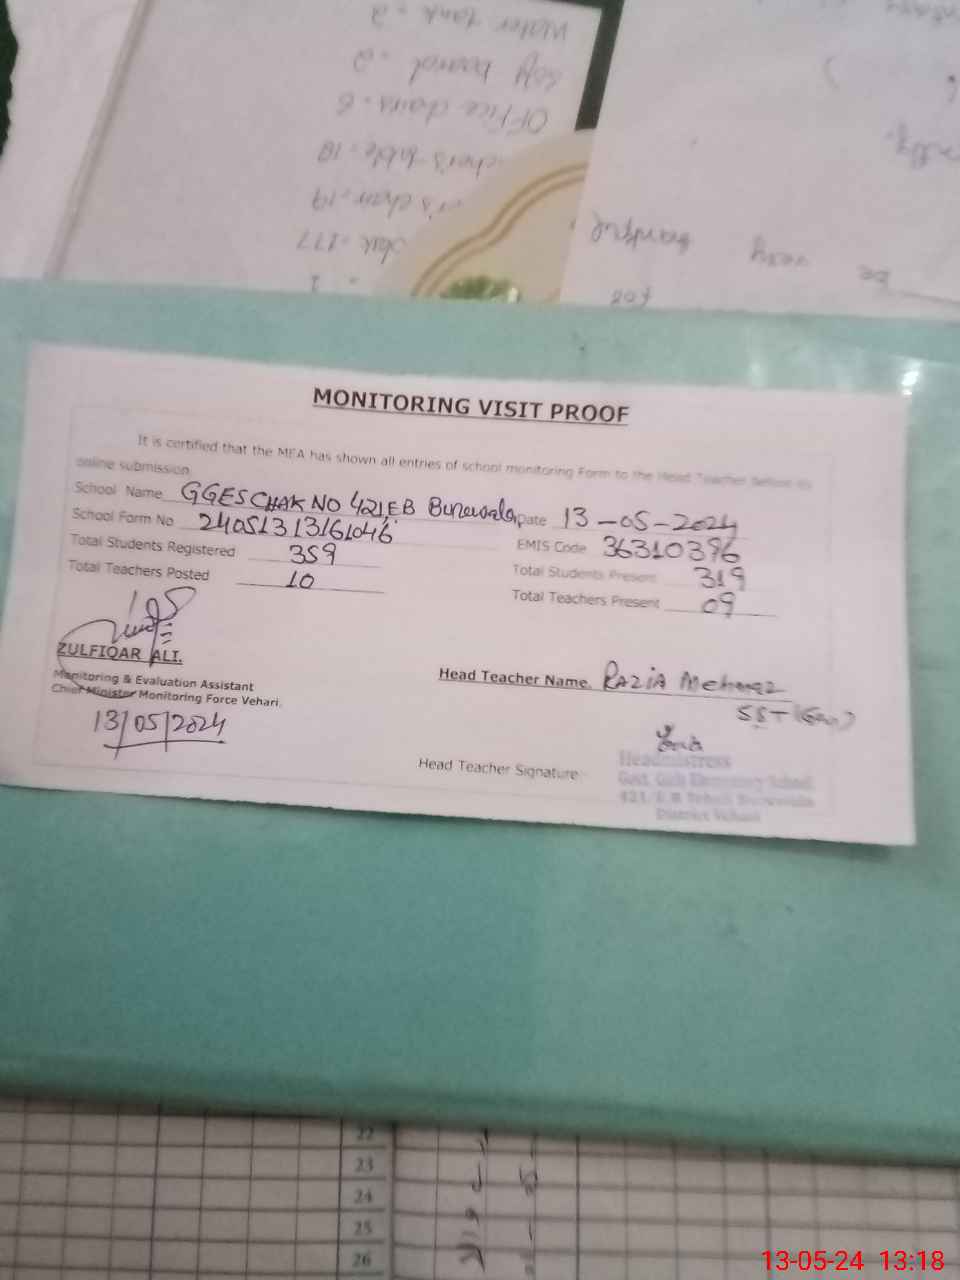 Water tank = 2
Office chairs = 6
be very
for
MONITORING VISIT PROOF
It is certified that the MEA has shown all entries of school monitoring Form to the Head Teacher before its
online submission.
School Name GGES CHAK NO 421EB Date 13-05-2024
School Form No 24051313161046 EMIS Code 36310396
Total Students Registered 359 Total Students Present 319
Total Teachers Posted 10 Total Teachers Present 09
ZULFIQAR ALI.
Monitoring & Evaluation Assistant
Chief Minister Monitoring Force Vehari.
13/05/2024
Head Teacher Name. RAZIA Mehnaz
SST
Head Teacher Signature
Headmistress
Govt. Girls Elementary School
District Vehari
22
23
24
25
26
13-05-24 13:18